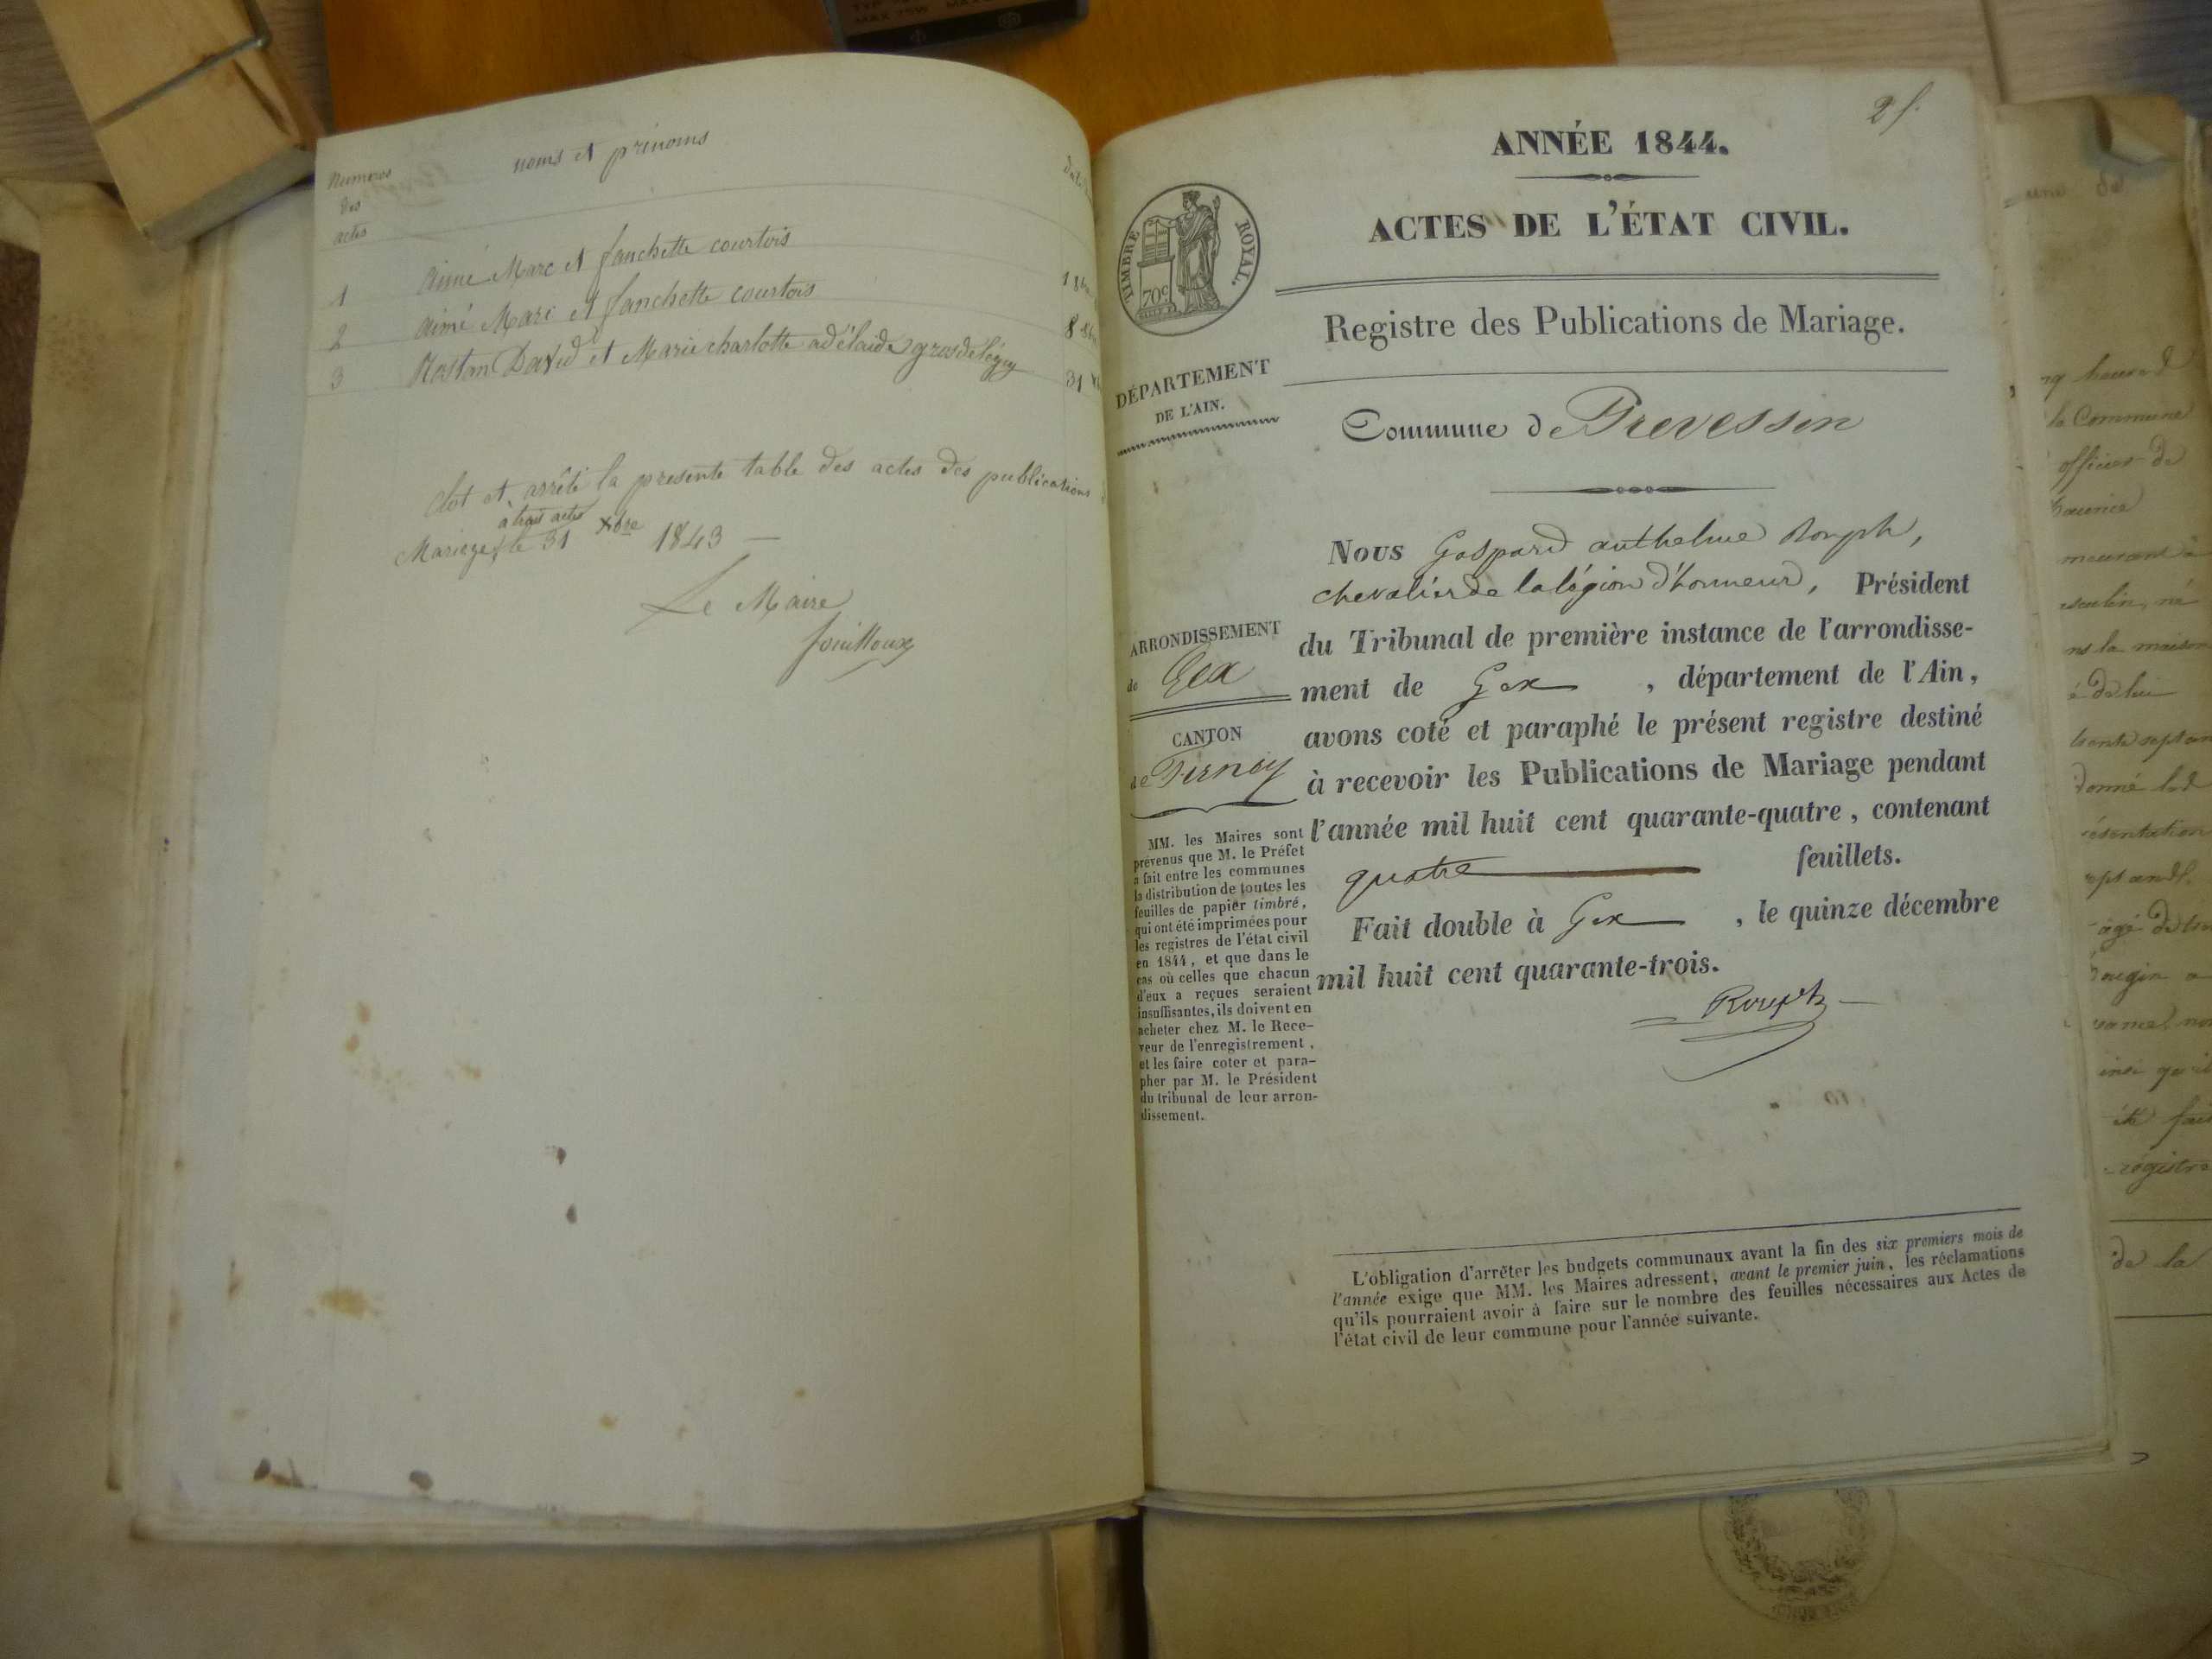 Numeros
des
actes
noms et prénoms
1 Aimé Marc et fanchette courtois
2 Aimé Marc et fanchette courtois
3 Rostan David et Marie charlotte adélaide grosdelégey 31
clot et arrêté la presente table des actes des publications
à trois actes
Mariage, le 31 Xbre 1843 —
Le Maire
fouilloux
2 f.
ANNÉE 1844.
ACTES DE L'ÉTAT CIVIL.
TIMBRE ROYAL.
70c
Registre des Publications de Mariage.
DÉPARTEMENT
DE L'AIN.
Commune de Prevessin
Nous Gaspard anthelme Rouph,
chevalier de la légion d'honneur, Président
du Tribunal de première instance de l'arrondisse-
ment de Gex , département de l'Ain,
avons coté et paraphé le présent registre destiné
à recevoir les Publications de Mariage pendant
l'année mil huit cent quarante-quatre, contenant
quatre feuillets.
Fait double à Gex , le quinze décembre
mil huit cent quarante-trois.
Rouph
ARRONDISSEMENT
de Gex
CANTON
de Ferney
MM. les Maires sont
prévenus que M. le Préfet
a fait entre les communes
la distribution de toutes les
feuilles de papier timbré,
qui ont été imprimées pour
les registres de l'état civil
en 1844, et que dans le
cas où celles que chacun
d'eux a reçues seraient
insuffisantes, ils doivent en
acheter chez M. le Rece-
veur de l'enregistrement,
et les faire coter et para-
pher par M. le Président
du tribunal de leur arron-
dissement.
L'obligation d'arrêter les budgets communaux avant la fin des six premiers mois de
l'année exige que MM. les Maires adressent, avant le premier juin, les réclamations
qu'ils pourraient avoir à faire sur le nombre des feuilles nécessaires aux Actes de
l'état civil de leur commune pour l'année suivante.
la Commune
officier de
la maison
de lui
trente sept an
donné
âgé de
registre
de la